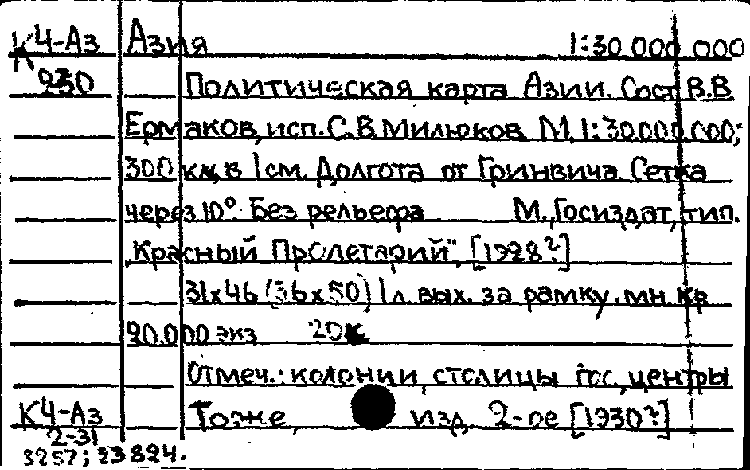 К4-Аз Азия 1:30 000 000
930 Политическая карта Азии. Сост В.В
Ермаков, исп. С.В. Милюков. М. 1:30.000.000;
300 км в 1 см. Долгота от Гринвича. Сетка
через 10°. Без рельефа М., Госиздат, тип.
"Красный Пролетарий", [1928?]
31х46 (36х50) 1 л. вых. за рамку. мн. кр
20.000 экз 20к
Отмеч.: колонии, столицы гос, центры
К4-Аз Тоже, изд. 2-ое [1930?]
2-31
3257; 23824.